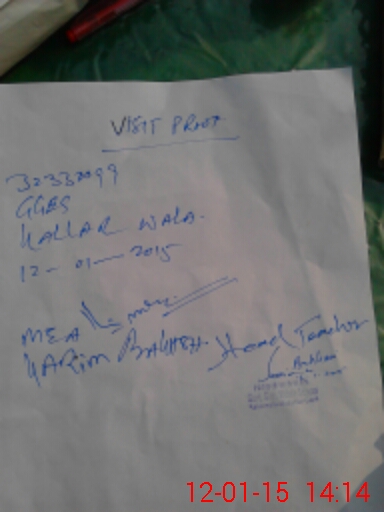 VISIT PROOF
32330099
GGES
KALLAR WALA.
12 - 01 - 2015
MEA
KARIM BAKHSH. Head Teacher
12-01-15 14:14